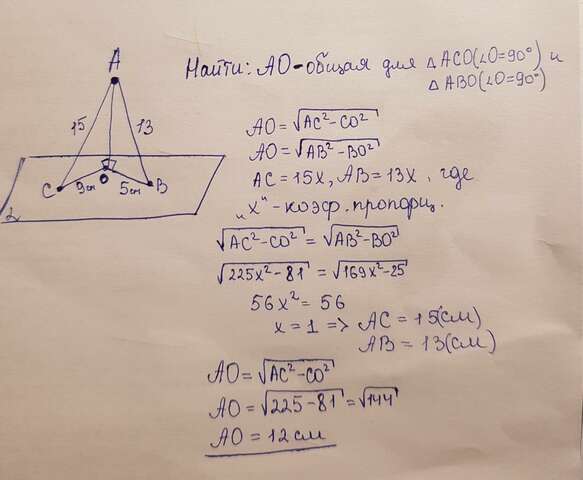 Найти: AO-общая для △ACO(∠O=90°) и
△ABO(∠O=90°)
A
15
13
C
9см
O
5см
B
α
AO = √AC²-CO²
AO = √AB²-BO²
AC = 15x, AB = 13x, где
„x"-коэф. пропорц.
√AC²-CO² = √AB²-BO²
√225x²-81 = √169x²-25
56x² = 56
x = 1 => AC = 15(см)
AB = 13(см)
AO = √AC²-CO²
AO = √225-81 = √144
AO = 12 см